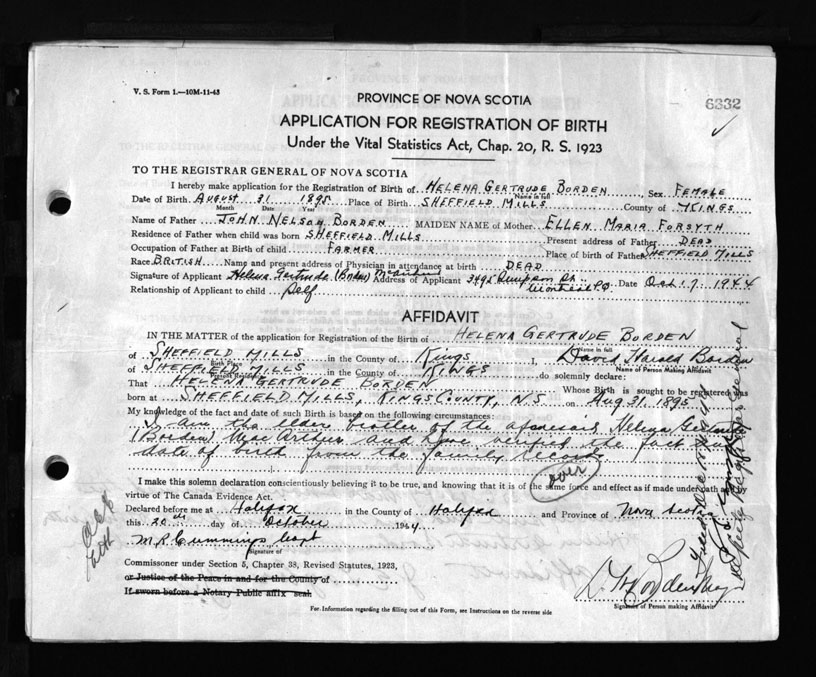 V. S. Form 1.—10M-11-43
6332
PROVINCE OF NOVA SCOTIA
APPLICATION FOR REGISTRATION OF BIRTH
Under the Vital Statistics Act, Chap. 20, R. S. 1923
TO THE REGISTRAR GENERAL OF NOVA SCOTIA
I hereby make application for the Registration of Birth of HELENA GERTRUDE BORDEN Sex FEMALE
Name in full
Date of Birth AUGUST 31 1895 Place of Birth SHEFFIELD MILLS County of KINGS
Month Date Year
Name of Father JOHN NELSON BORDEN MAIDEN NAME of Mother ELLEN MARIA FORSYTH
Residence of Father when child was born SHEFFIELD MILLS Present address of Father DEAD
Occupation of Father at Birth of child FARMER Place of birth of Father SHEFFIELD MILLS
Race BRITISH Name and present address of Physician in attendance at birth DEAD
Signature of Applicant Helena Gertrude (Borden) Address of Applicant Montreal P.Q. Date Oct. 17, 1944
Relationship of Applicant to child Self
AFFIDAVIT
IN THE MATTER of the application for Registration of the Birth of HELENA GERTRUDE BORDEN
Name in full
of SHEFFIELD MILLS in the County of Kings I, David Harold Borden
Name of Person Making Affidavit
of SHEFFIELD MILLS in the County of KINGS do solemnly declare:
That HELENA GERTRUDE BORDEN Whose Birth is sought to be registered was
born at SHEFFIELD MILLS, KINGS COUNTY, N.S. on Aug 31, 1895
My knowledge of the fact and date of such Birth is based on the following circumstances:
I am the elder brother of the aforesaid Helena Gertrude
(Borden) MacArthur and have verified the fact and
date of birth from the family records.
over
I make this solemn declaration conscientiously believing it to be true, and knowing that it is of the same force and effect as if made under oath and by
virtue of The Canada Evidence Act.
Declared before me at Halifax in the County of Halifax and Province of Nova Scotia
this 20th day of October 1944
M.R. Cummings Capt
Signature of
Commissioner under Section 5, Chapter 38, Revised Statutes, 1923,
or Justice of the Peace in and for the County of
If sworn before a Notary Public affix seal
Signature of Person making Affidavit
For Information regarding the filling out of this Form, see Instructions on the reverse side
Deputy Registrar General